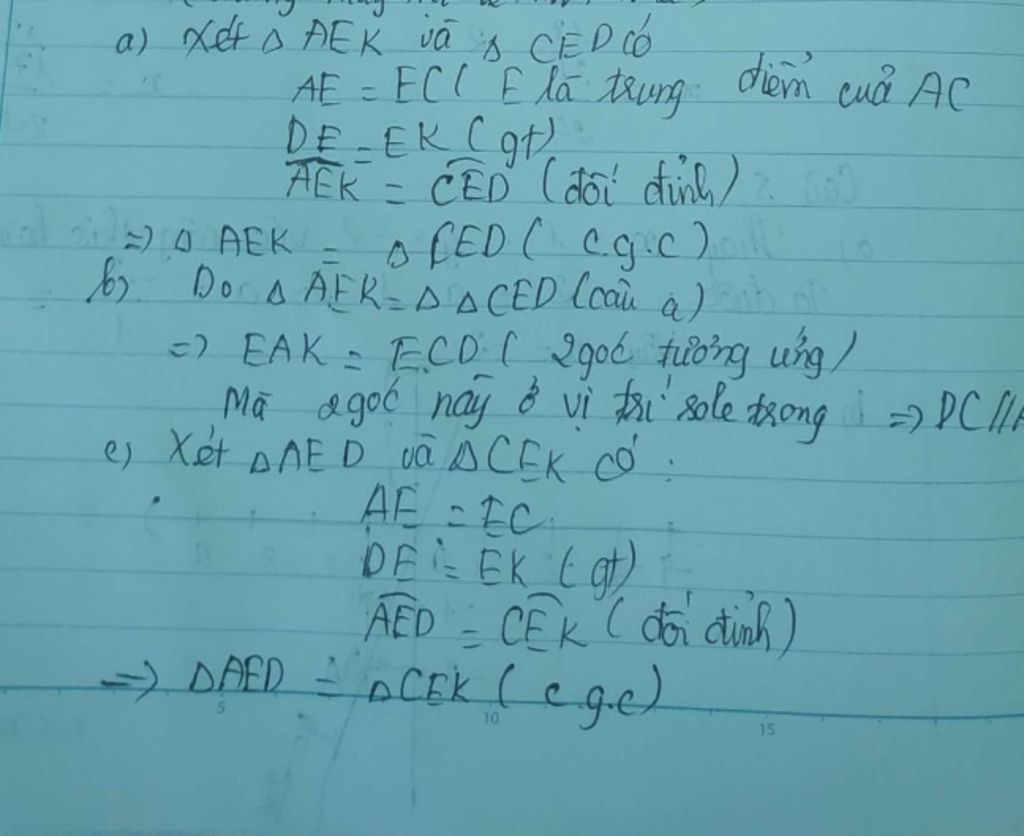 a) Xét Δ AEK và Δ CED có
AE = EC ( E là trung điểm cuả AC
DE = EK ( gt)
AEK = CED (đối đỉnh)
=> Δ AEK = Δ CED ( c.g.c )
b) Do Δ AEK = Δ Δ CED (câu a)
=> EAK = ECD ( 2 góc tương ứng)
Mà 2 góc này ở vị trí sole trong => DC //
c) Xét Δ AED và Δ CEK có :
AE = EC
DE = EK ( gt)
AED = CEK ( đối đỉnh)
=> Δ AED = Δ CEK ( c.g.c)
5 10 15